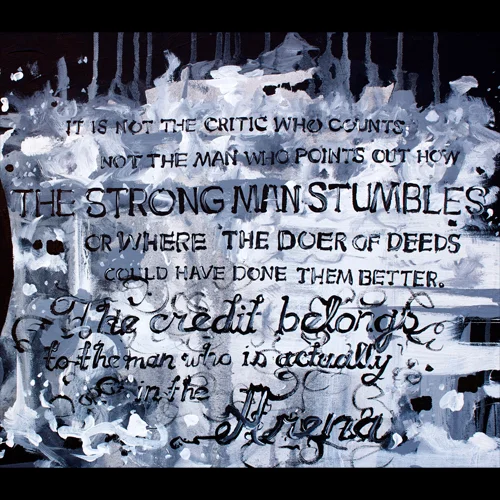 IT IS NOT THE CRITIC WHO COUNTS,
NOT THE MAN WHO POINTS OUT HOW
THE STRONG MAN STUMBLES,
OR WHERE THE DOER OF DEEDS
COULD HAVE DONE THEM BETTER.
The credit belongs
to the man who is actually
in the
Arena